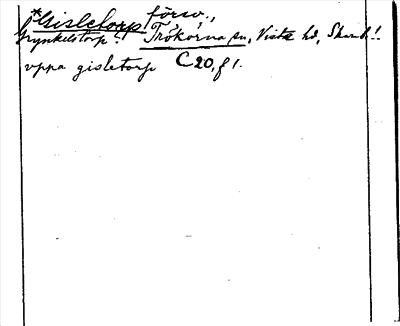 *Gisletorp försv.,
Grynkelstorp?! Trökörna sn, Viste hd, Skarab.!!
uppa gisletorp C 20, f 1.